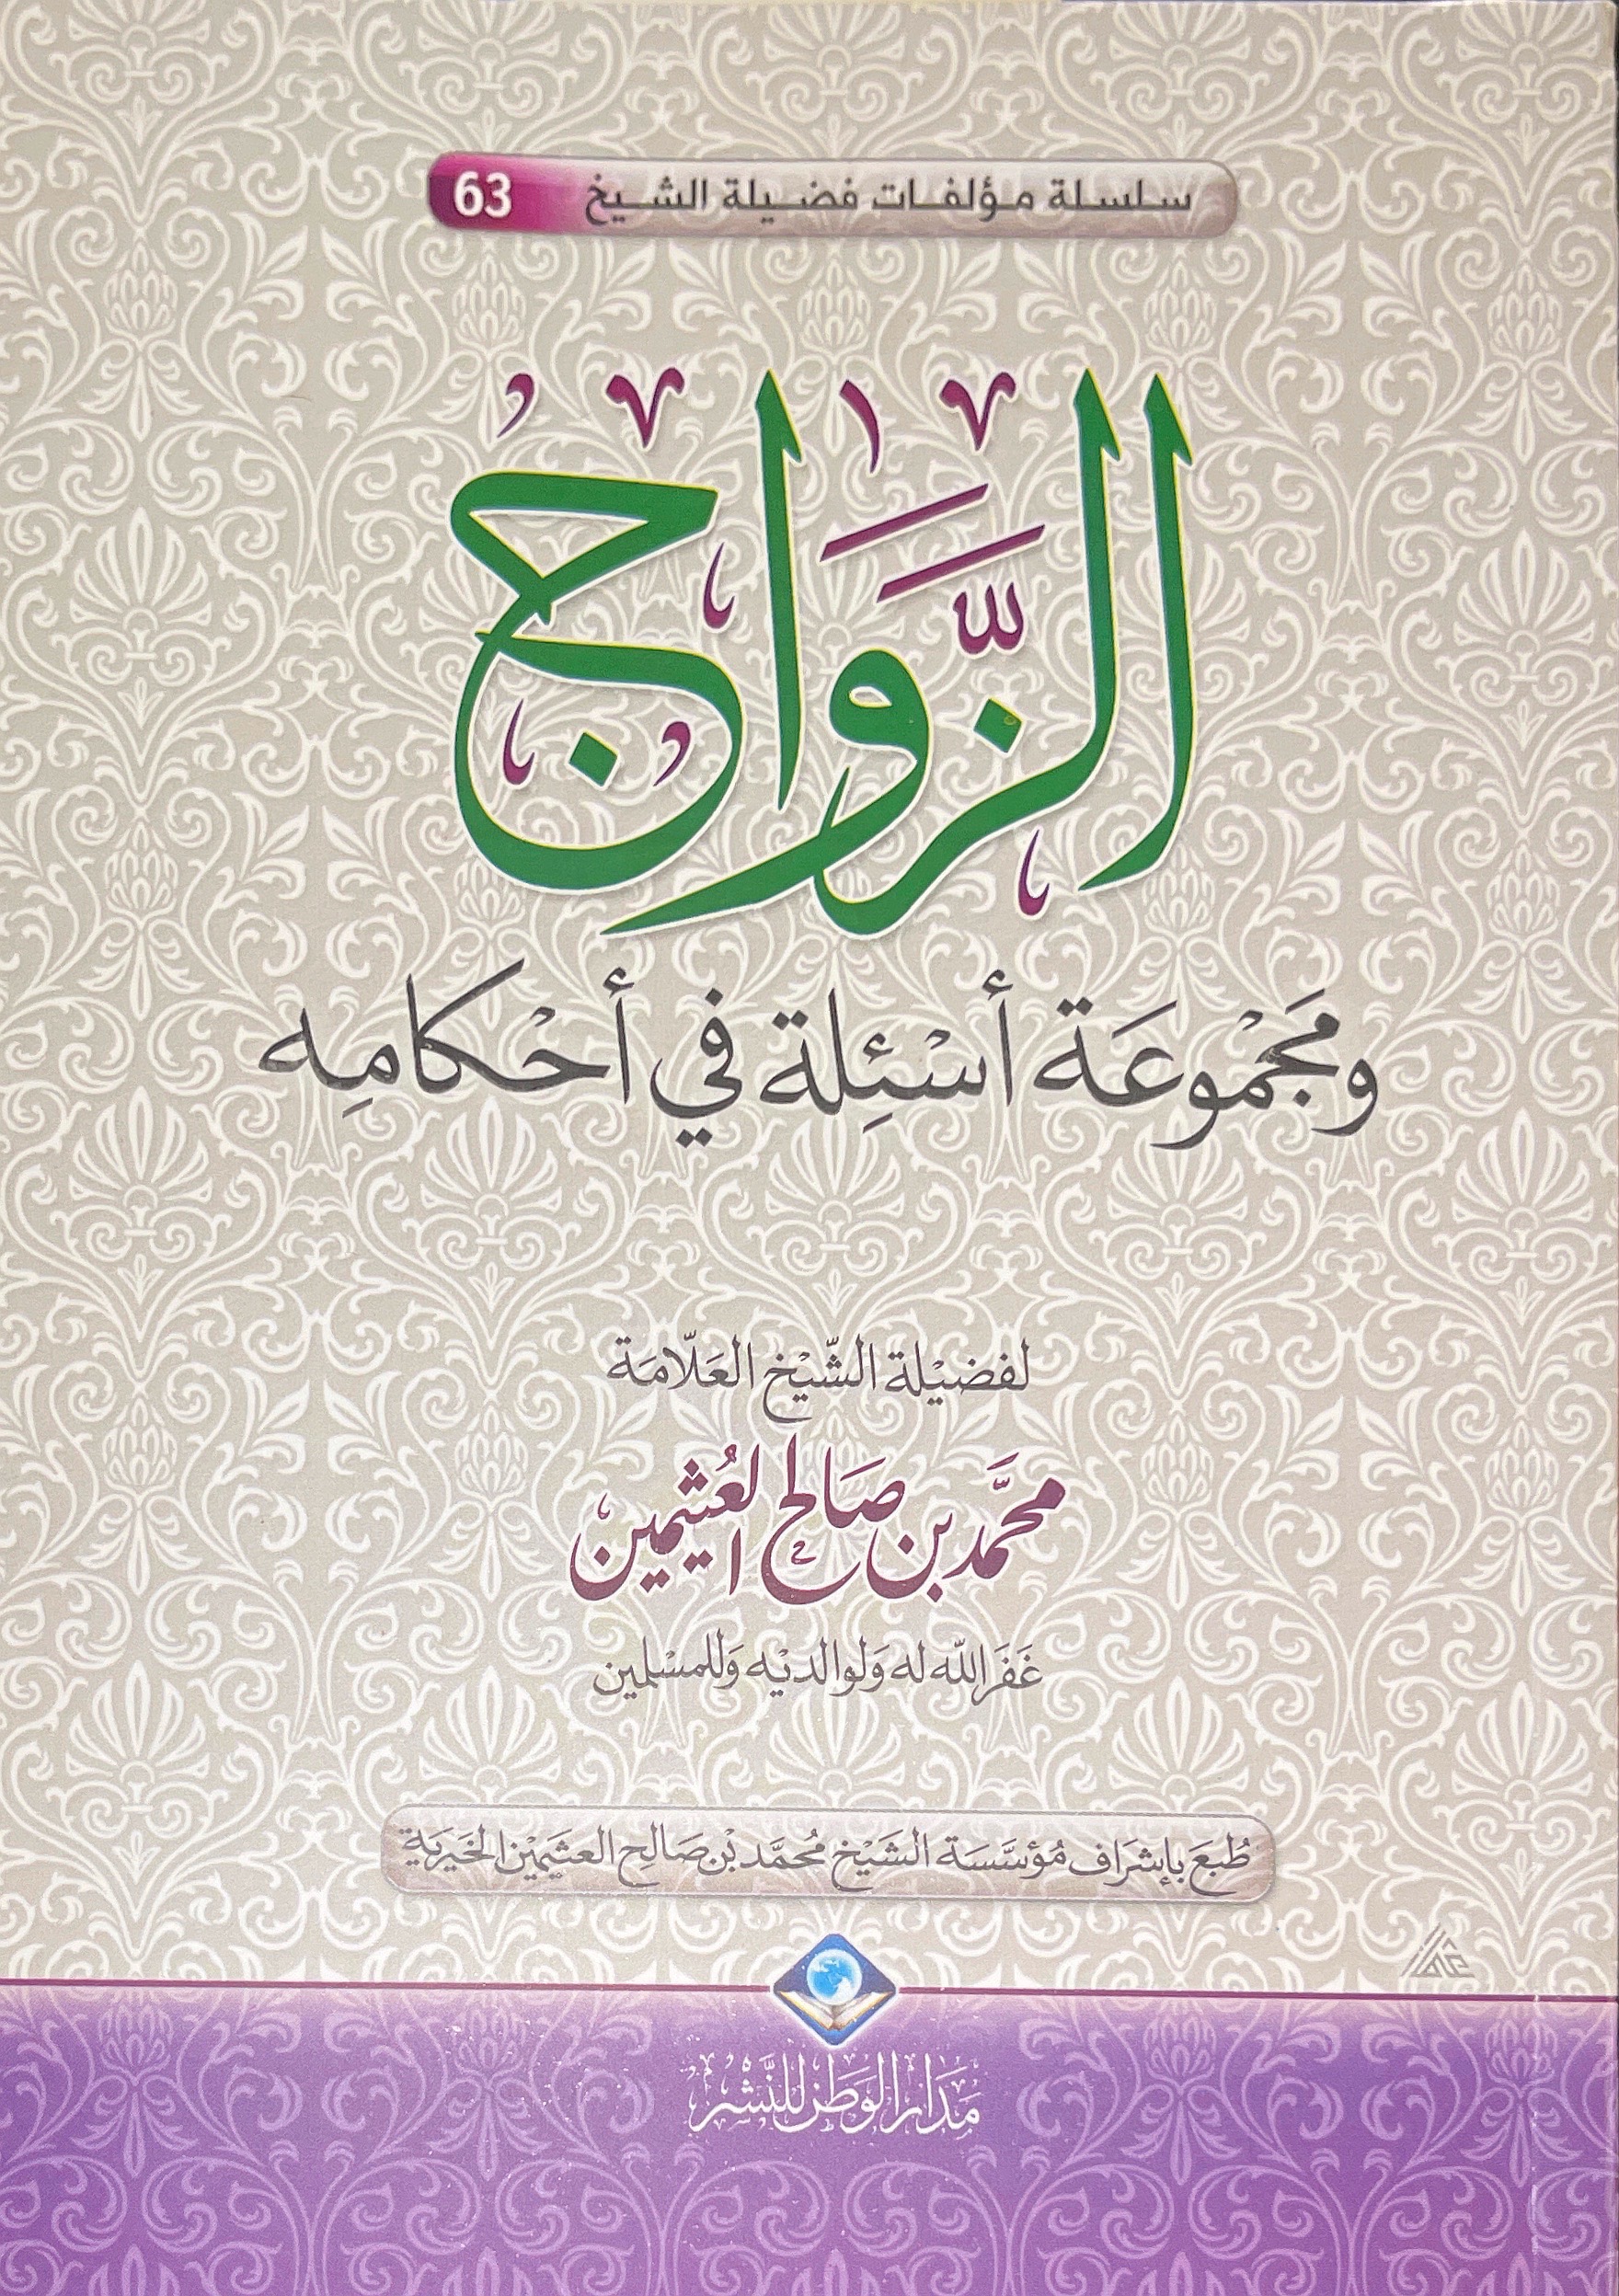 سلسلة مؤلفات فضيلة الشيخ 63
الزَّوَاج
ومَجْموعَة أسْئِلة في أحْكامِه
لفضيْلة الشّيْخ العَلّامَة
محمَّد بن صَالح العُثيمين
غَفَر اللّه له وَلوالديْه وَللمسْلمين
طُبعَ بإشرَاف مُؤسَّسَة الشَيْخ مُحمَّد بْن صَالِح العثَيمْين الخَيريَة
مَدَار الوَطَن للنَّشْر